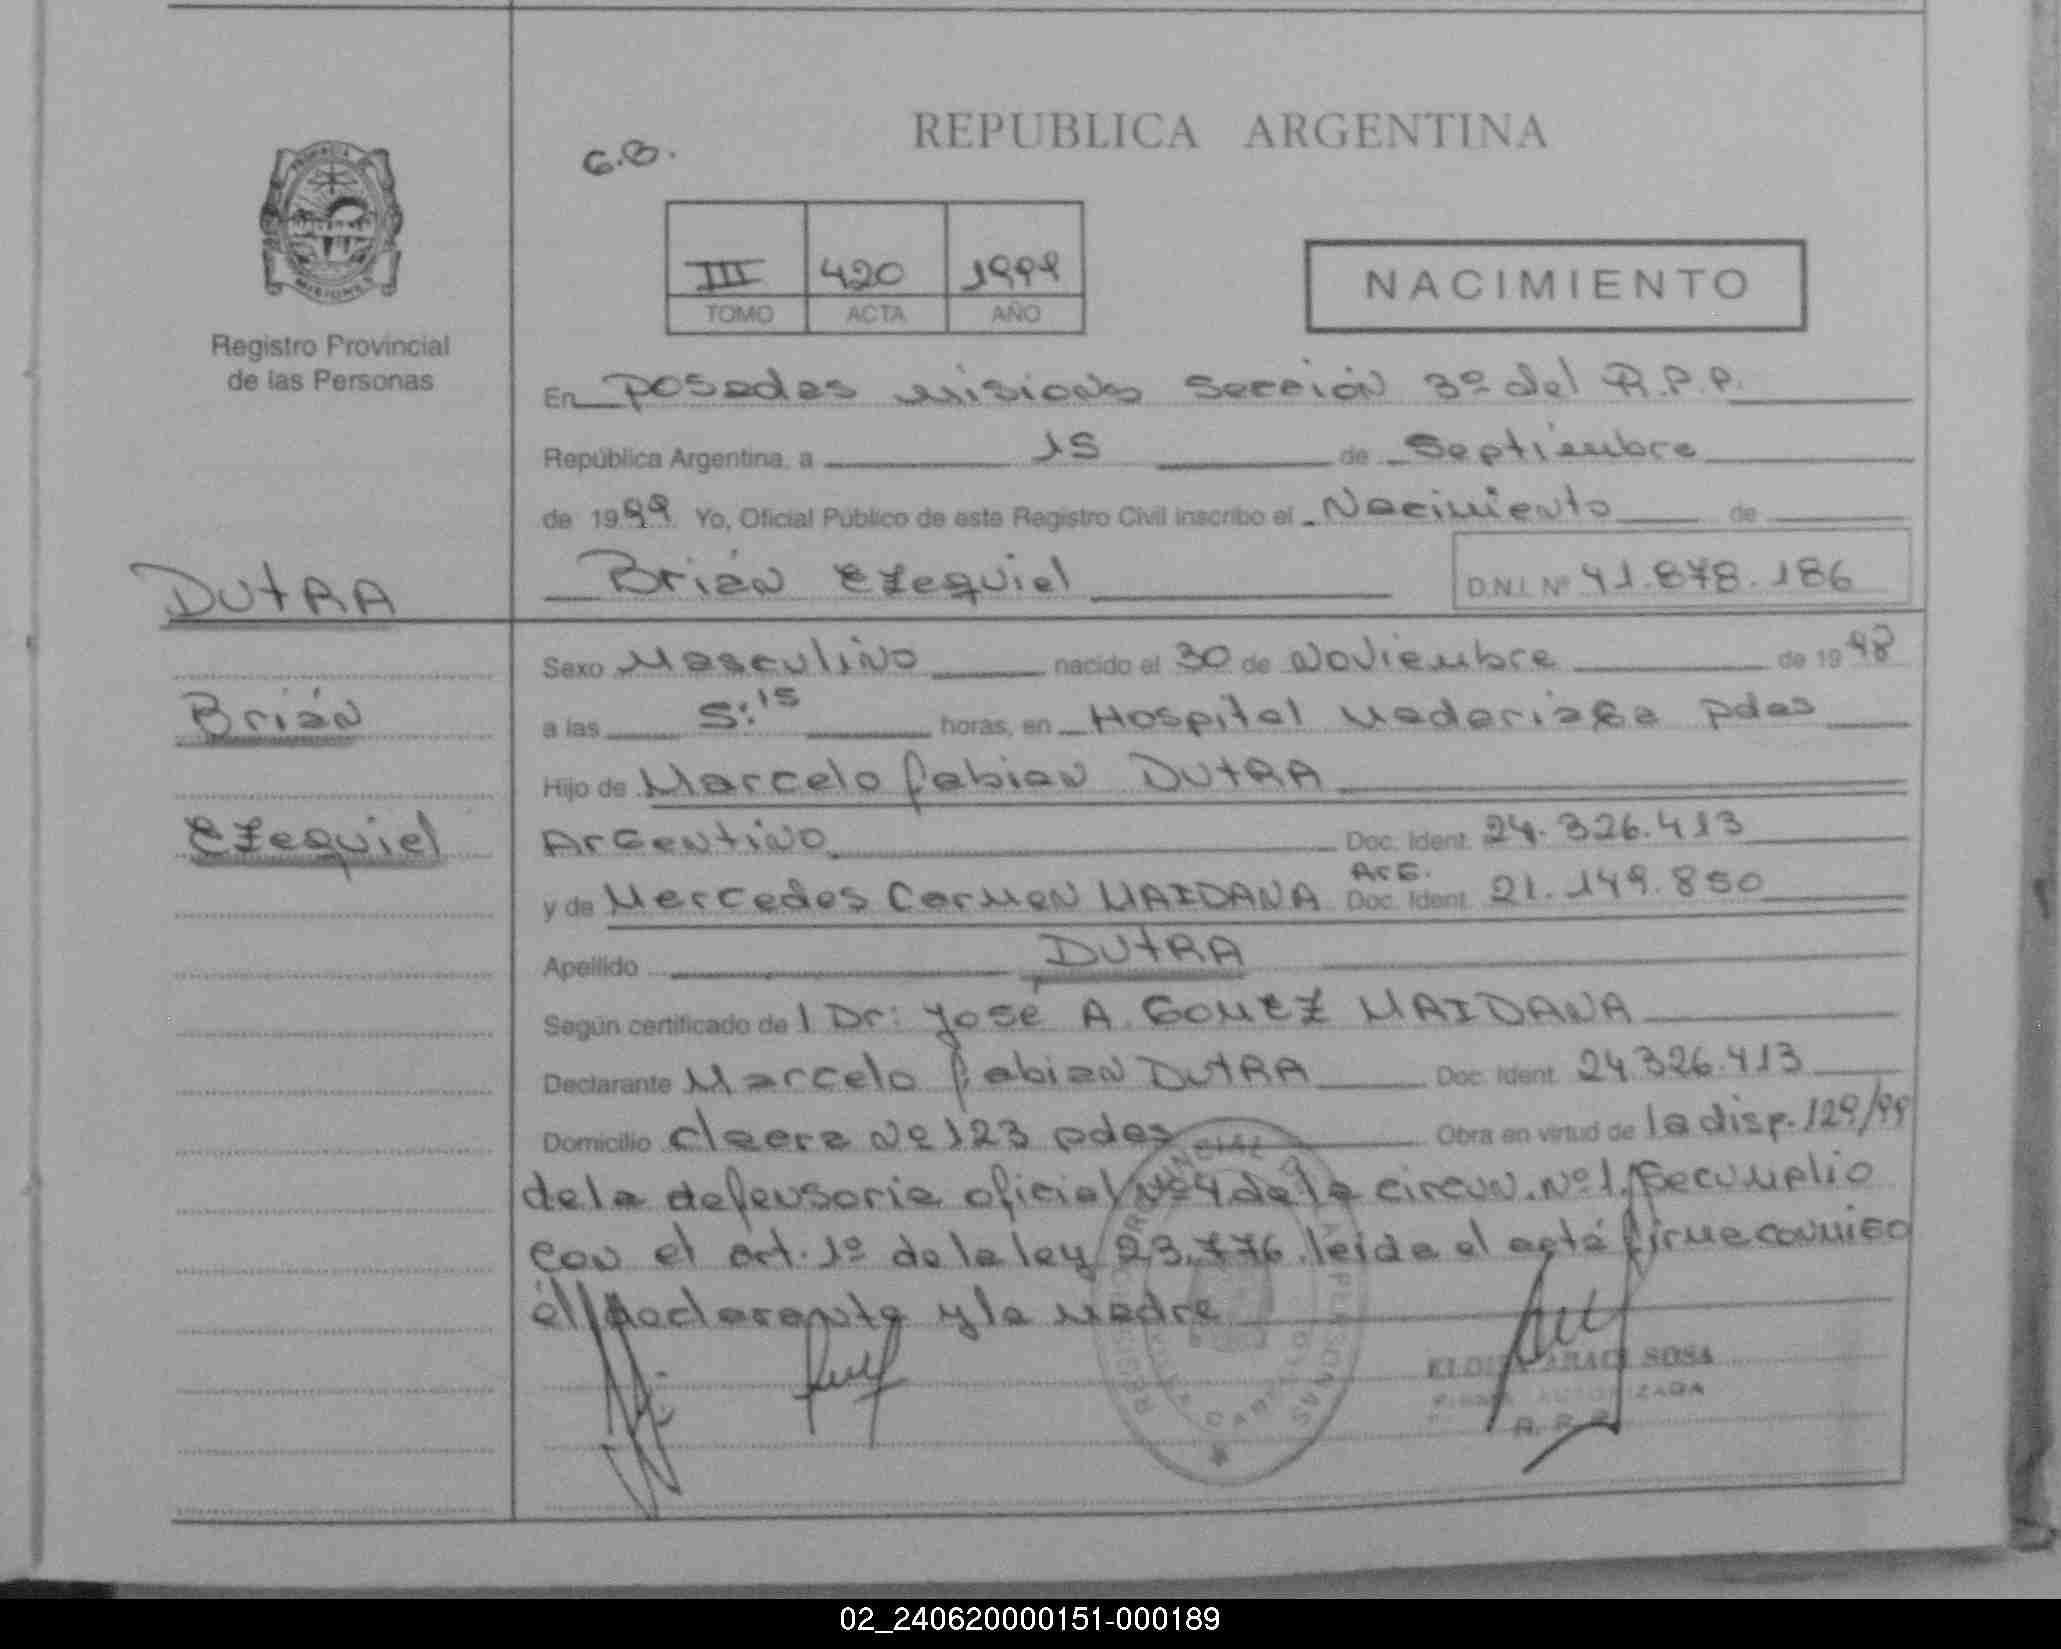 REPUBLICA ARGENTINA
G.B.
III 420 1999
TOMO ACTA AÑO
NACIMIENTO
PROVINCIA
MISIONES
Registro Provincial
de las Personas
En Posadas Misiones Sección 3º del R.P.P.
República Argentina, a 15 de Septiembre
de 1999 Yo, Oficial Público de este Registro Civil inscribo el Nacimiento de
Brián Ezequiel D.N.I. Nº 41.878.186
DUtRA
Brián
Ezequiel
Sexo Masculino nacido el 30 de Noviembre de 1998
a las 5:15 horas, en Hospital Madariaga pdas
Hijo de Marcelo fabian DUtRA
Argentino Doc. Ident. 24.326.413
y de Mercedes Carmen MAIDANA Arg. Doc. Ident. 21.149.850
Apellido DUtRA
Según certificado de l Dr: José A. GOMEZ MAIDANA
Declarante Marcelo fabian DUtRA Doc. Ident. 24326.413
Domicilio Nº 123 pdas Obra en virtud de la disp. 129/99
de la defensoria oficial Nº 4 de la circun. Nº 1. Se cumplio
con el art. 1º de la ley 23.776. leida el acta firma conmigo
él declarante y la madre
SOSA
AUTORIZADA
R.P.P.
02_240620000151-000189